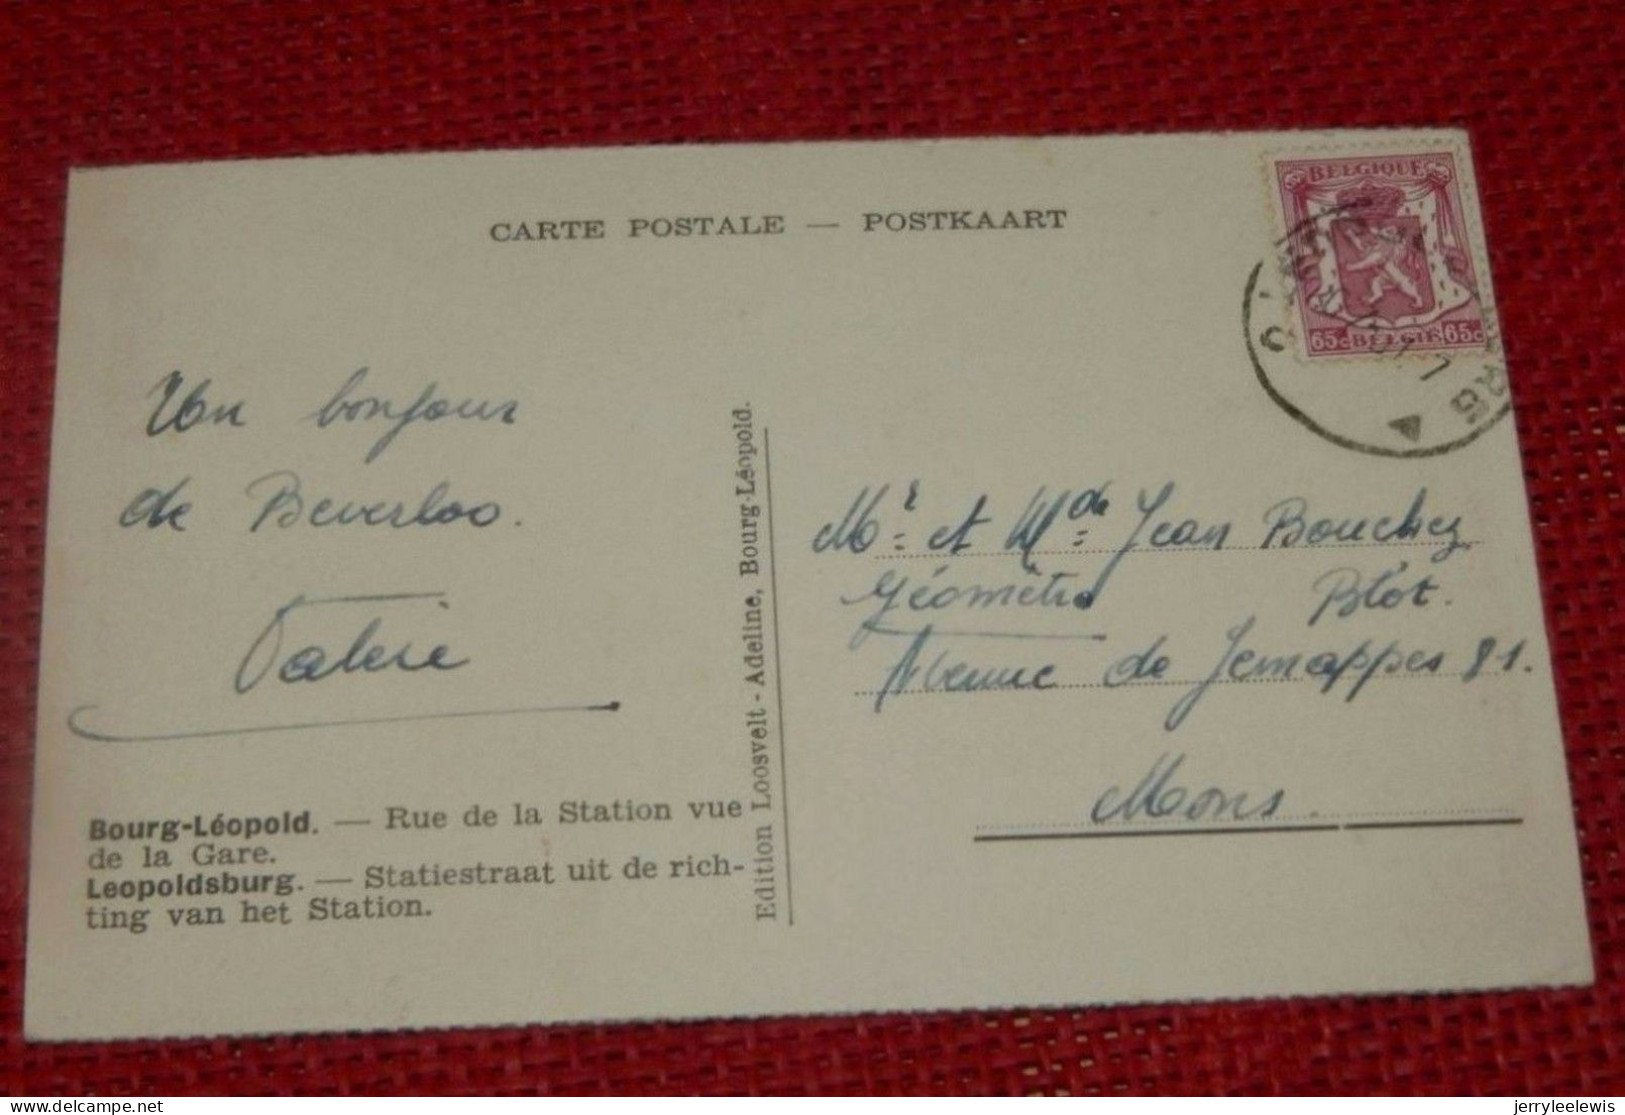 CARTE POSTALE — POSTKAART
BELGIQUE
65c BELGIE 65c
Un bonjour
de Beverloo.
Valère
Bourg-Léopold. — Rue de la Station vue
de la Gare.
Leopoldsburg. — Statiestraat uit de rich-
ting van het Station.
Edition Loosvelt - Adeline, Bourg-Léopold.
Mr et Mde Jean Bouchez
Géomètre Blot.
Avenue de Jemappes 81.
Mons.
jerryleelewis